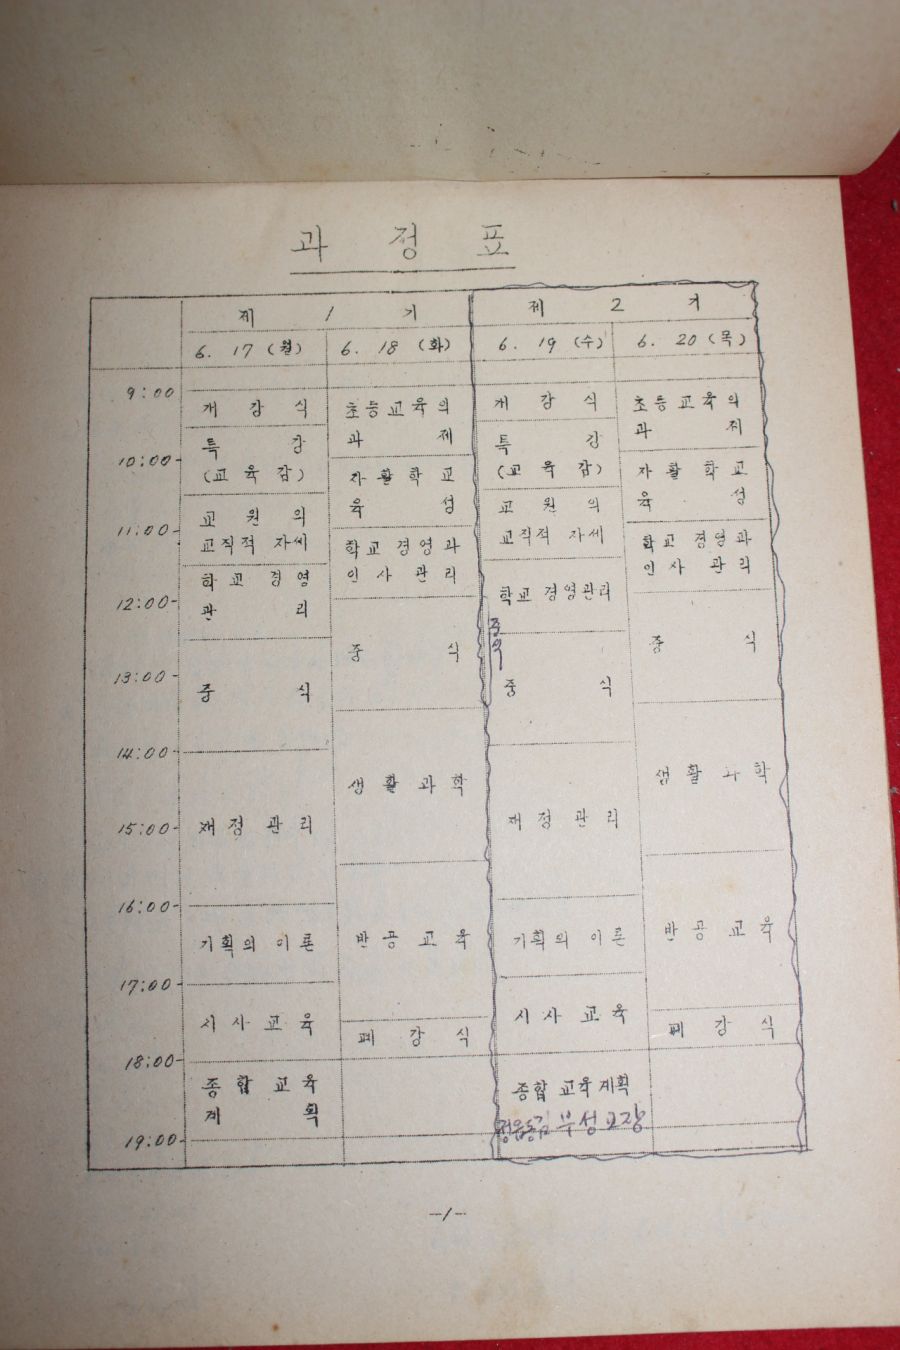 과 정 표
제 1 기
제 2 기
6. 17 (월)
6. 18 (화)
6. 19 (수)
6. 20 (목)
9:00
10:00
11:00
12:00
13:00
14:00
15:00
16:00
17:00
18:00
19:00
개 강 식
특 강
(교 육 감)
교 원 의
교직적 자세
학 교 경 영
관 리
중 식
재 정 관 리
기획의 이론
시 사 교 육
종 합 교 육
계 획
초등교육의
과 제
자 활 학 교
육 성
학교 경영과
인 사 관 리
중 식
생 활 과 학
반 공 교 육
폐 강 식
개 강 식
특 강
(교 육 감)
교 원 의
교직적 자세
학교 경영관리
중 식
재 정 관 리
기획의 이론
시 사 교 육
종합 교육계획
부성교장
초등교육의
과 제
자 활 학 교
육 성
학교 경영과
인 사 관 리
중 식
생 활 과 학
반 공 교 육
폐 강 식
-1-